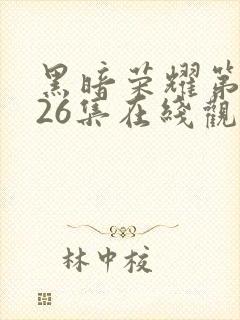 黑暗荣耀第
26集在线觀
林中校